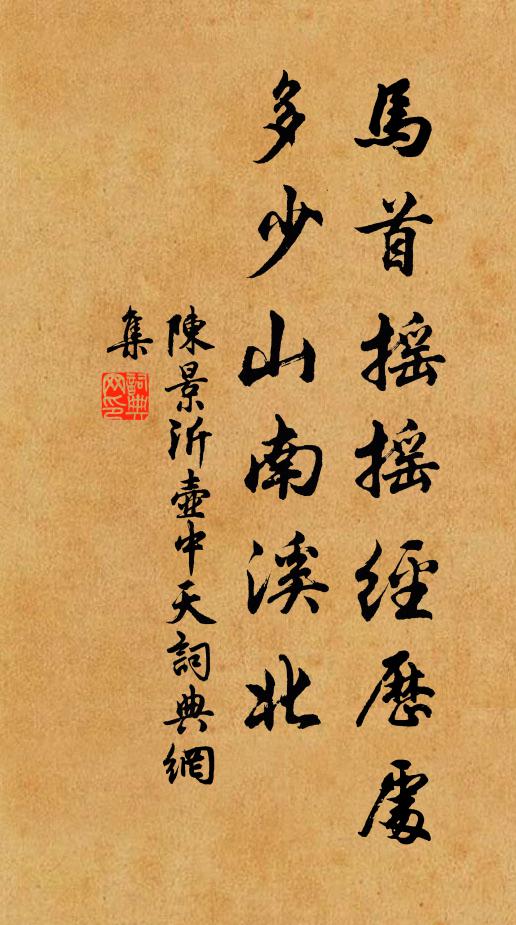 馬首摇摇經歷處
多少山南溪北
陳景沂壺中天詞典網
集
詞典
网印